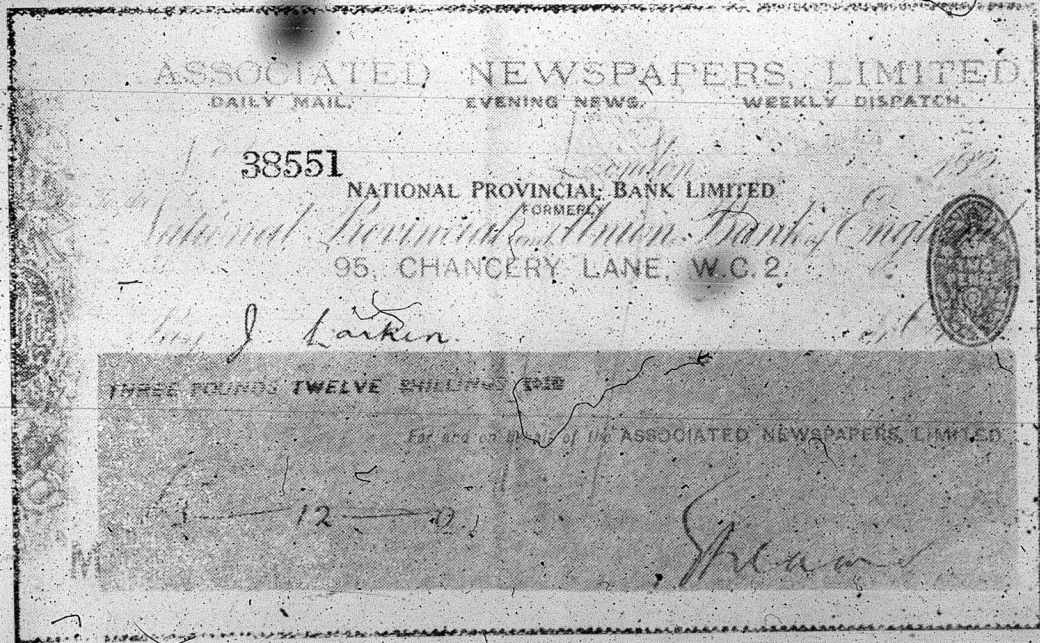 ASSOCIATED NEWSPAPERS, LIMITED.
DAILY MAIL. EVENING NEWS. WEEKLY DISPATCH.
38551 London
NATIONAL PROVINCIAL BANK LIMITED
FORMERLY
National Provincial and Union Bank of England
95, CHANCERY LANE, W.C.2.
Pay J. Larkin
THREE POUNDS TWELVE SHILLINGS
For and on behalf of the ASSOCIATED NEWSPAPERS, LIMITED
12
M